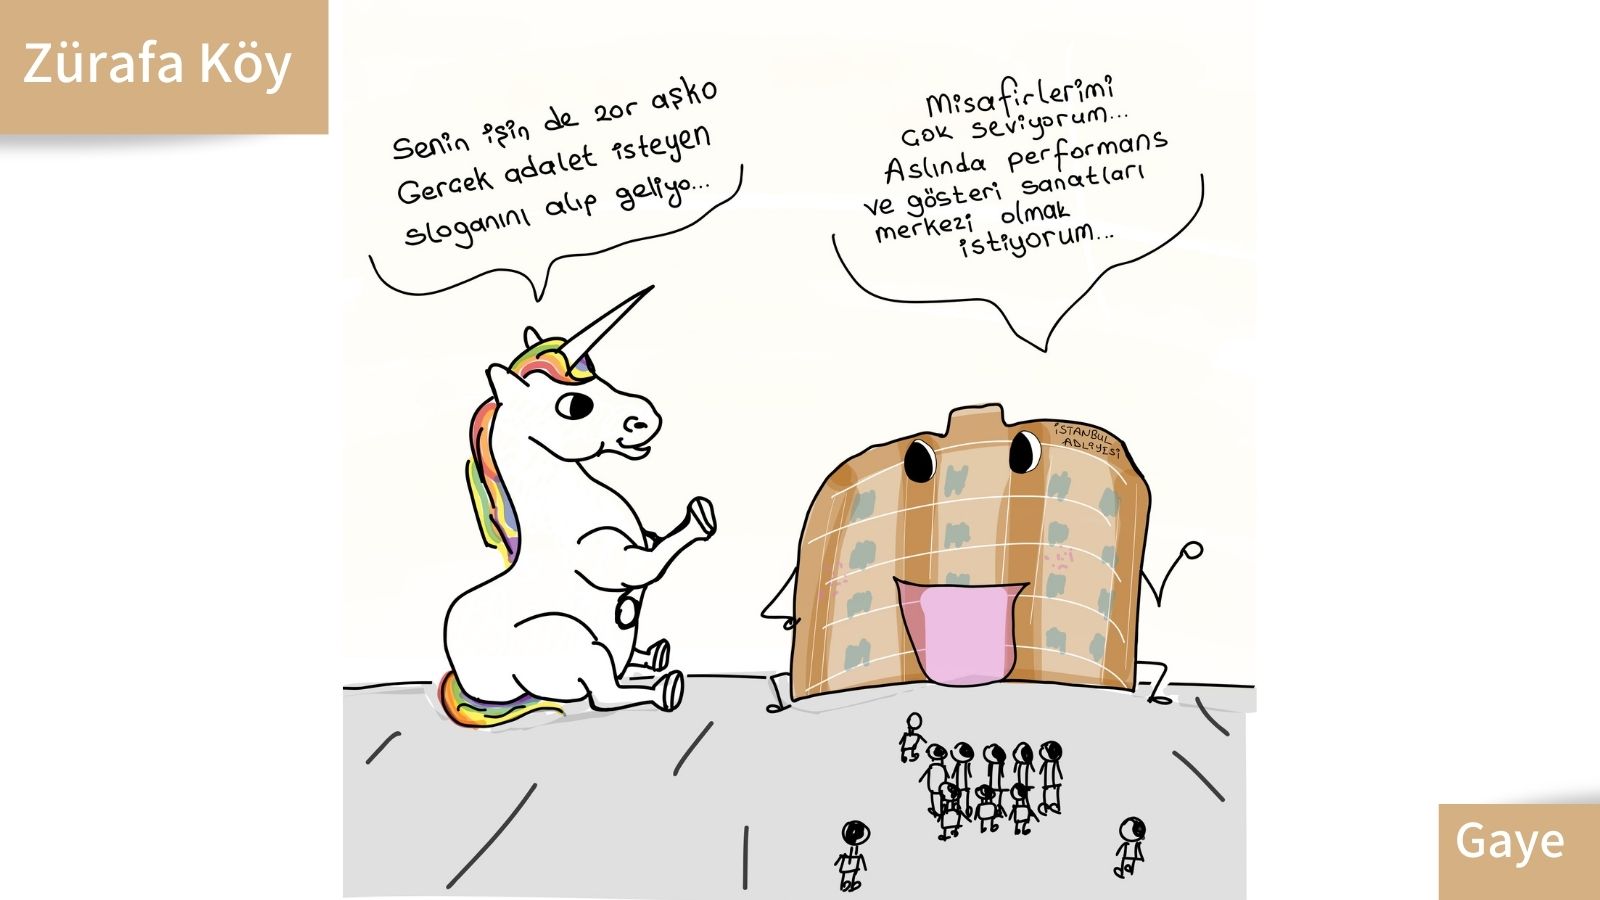 Zürafa Köy
Senin işin de zor aşko
Gercek adalet isteyen
sloganını alıp geliyo...
Misafirlerimi
cok seviyorum...
Aslında performans
ve gösteri sanatları
merkezi olmak
istiyorum...
İSTANBUL
ADLİYESİ
Gaye